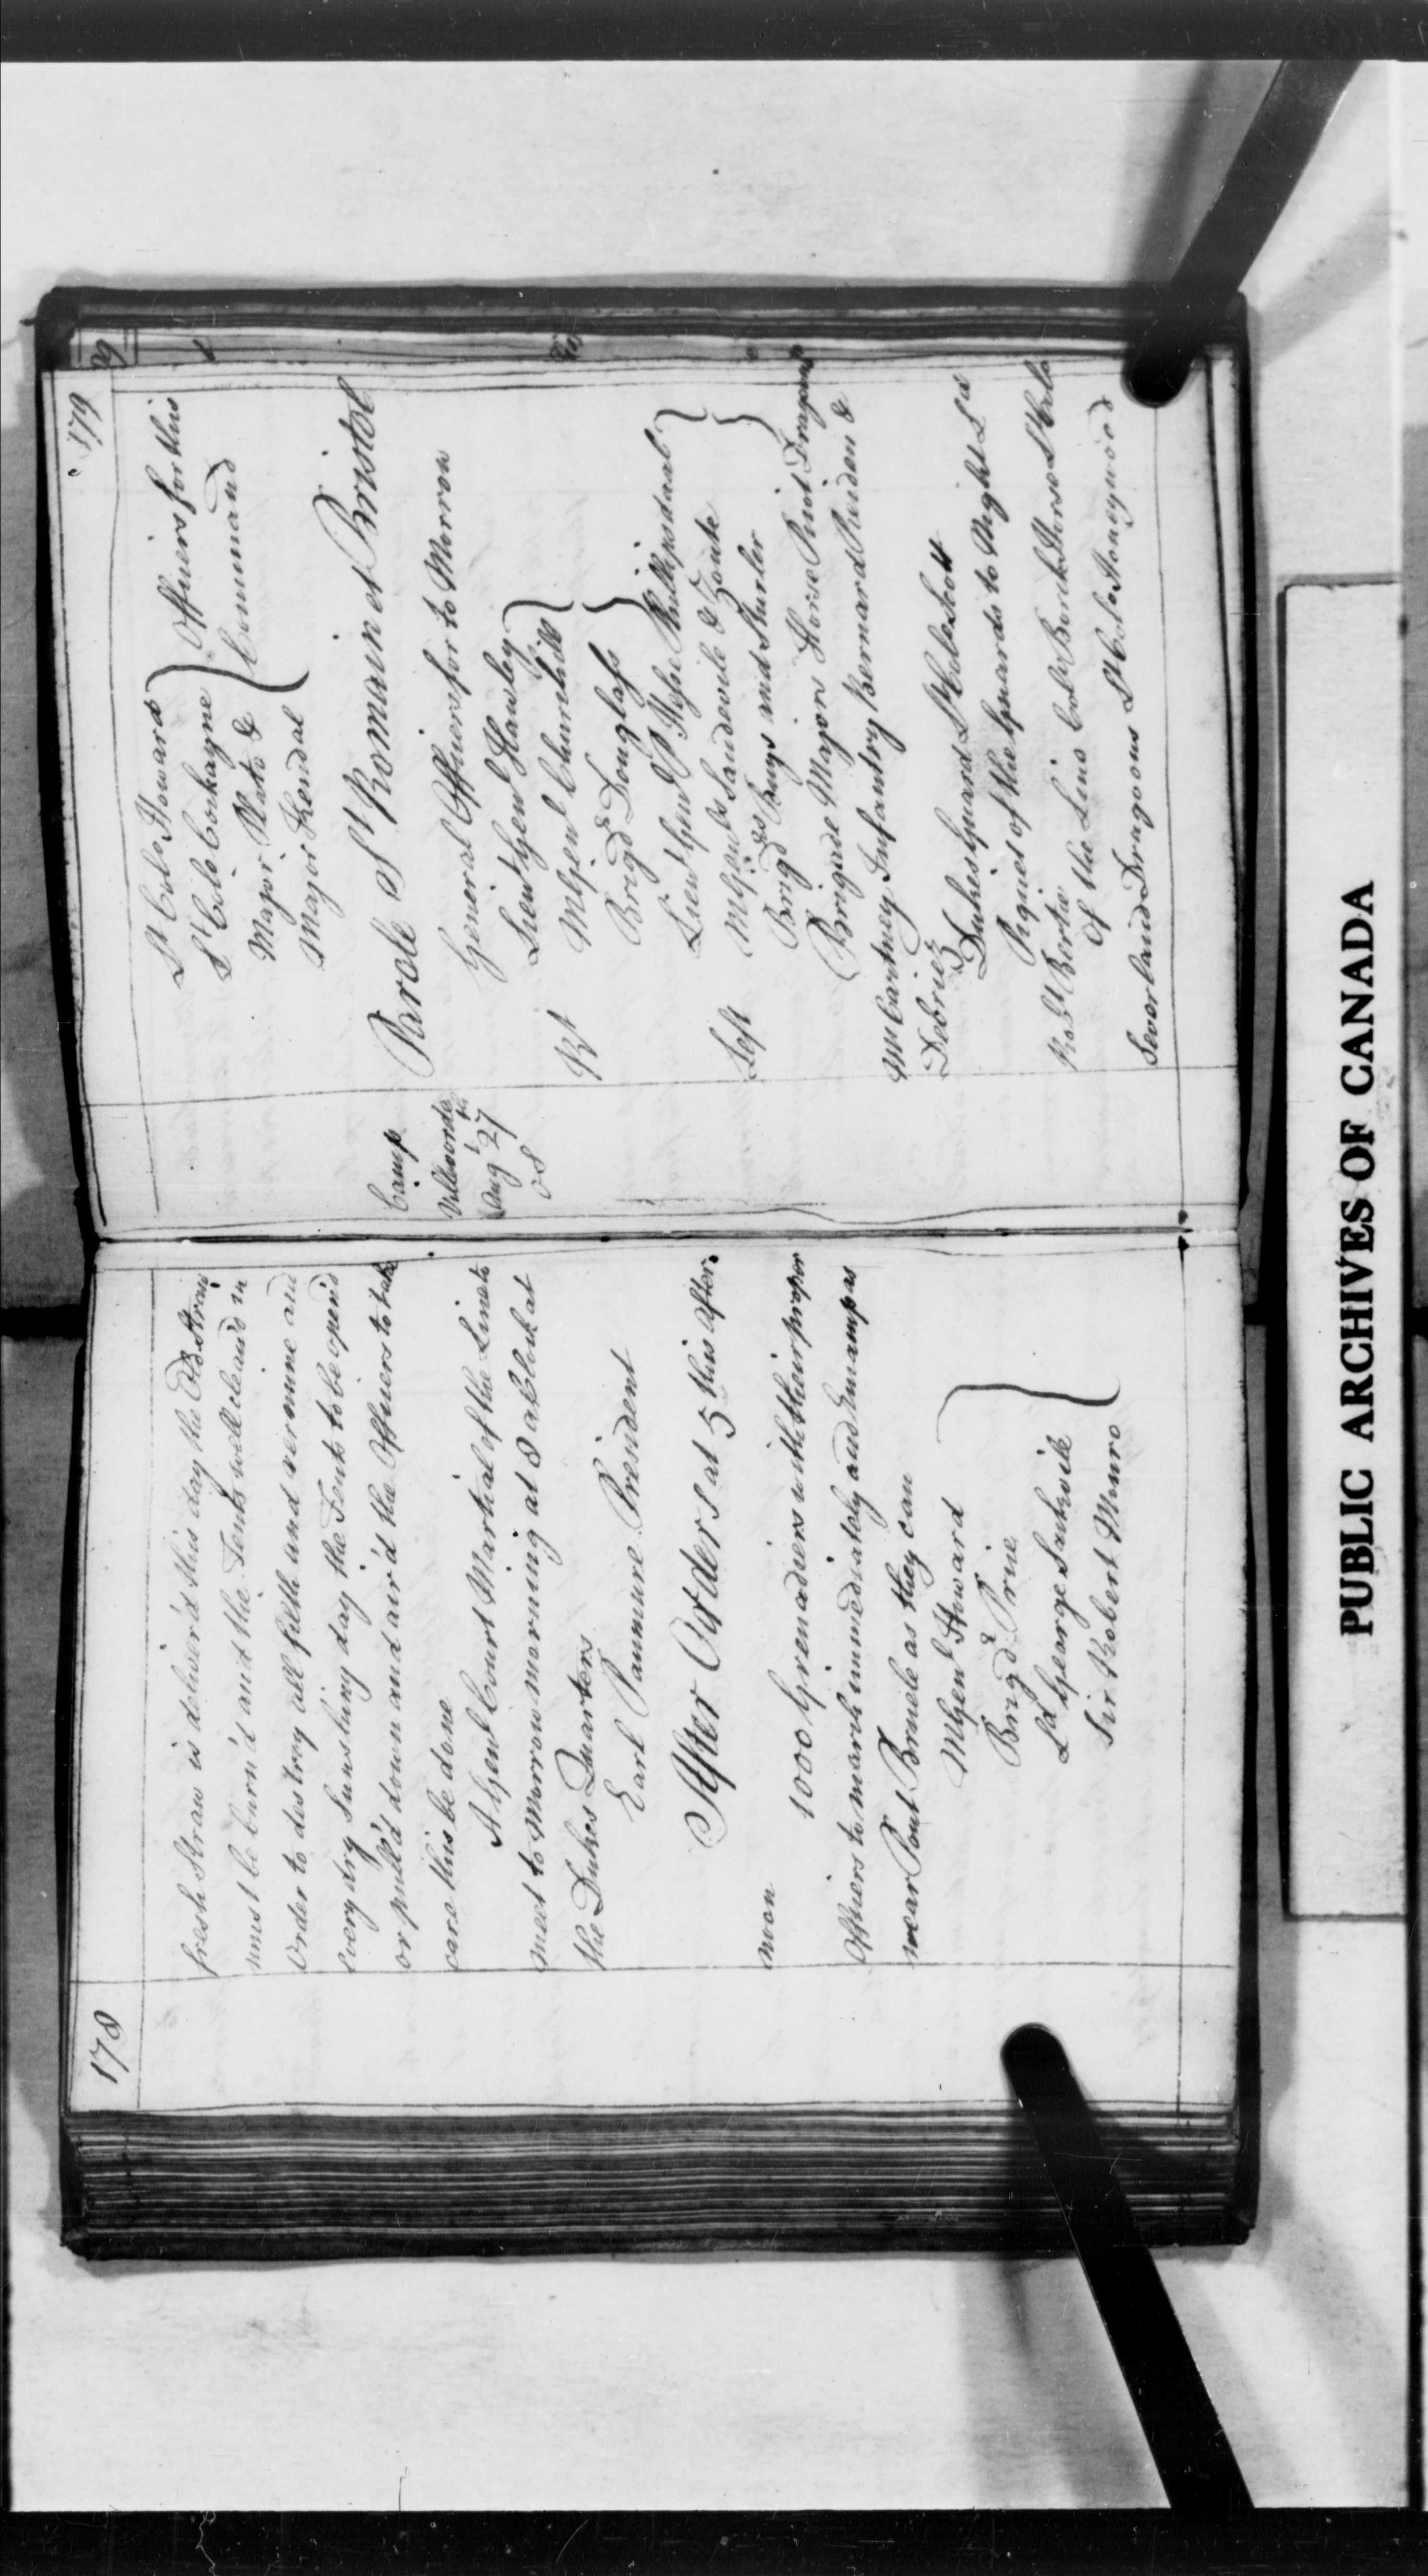 178
fresh Straw is deliver'd this day the Old Straw
must be burn'd and the Tents well clean'd in
Order to destroy all filth and vermine and
every dry Sunshiny day the Tents to be open'd
or pull'd down and air'd the Officers to take
care this be done
A Genl Court Martial of the Line to
meet to Morrow morning at 8 aClock at
the Dukes Quarters
Earl Panmure President
After Orders at 5 this after
noon
1000 Grenadiers with their proper
Officers to march immediately and Encamp as
near Pont Brule as they can
MGenl Howard
Brigdr Price
Ld George Sackvile
Sir Robert Munro
179
Lt Colo Howard
Lt Colo Corkayne
Major &
Major Kendal
Officers for this
Command
Camp
Villvorde
Augt 27th
08
Parole St Romain et Bristol
General Officers for to Morrow
Lieut Genl Hawley
Rt
MGenl Churchill
Brigdr Douglass
Lieut Genl P Hesse Phillipsdaal
Left
MGenls Saudevile & Zoute
Brigdrs and Sturler
Brigade Majors Horse Dragoons
McCartney Infantry Bernard Reiden &
Debriez
Dukes Guard Lt Colo Scott
Piquet of the Guards to Night Ld
Robt Bertie
Of the Line Colo Horse Lt Colo
Severland Dragoons Lt Colo Honeywood
PUBLIC ARCHIVES OF CANADA